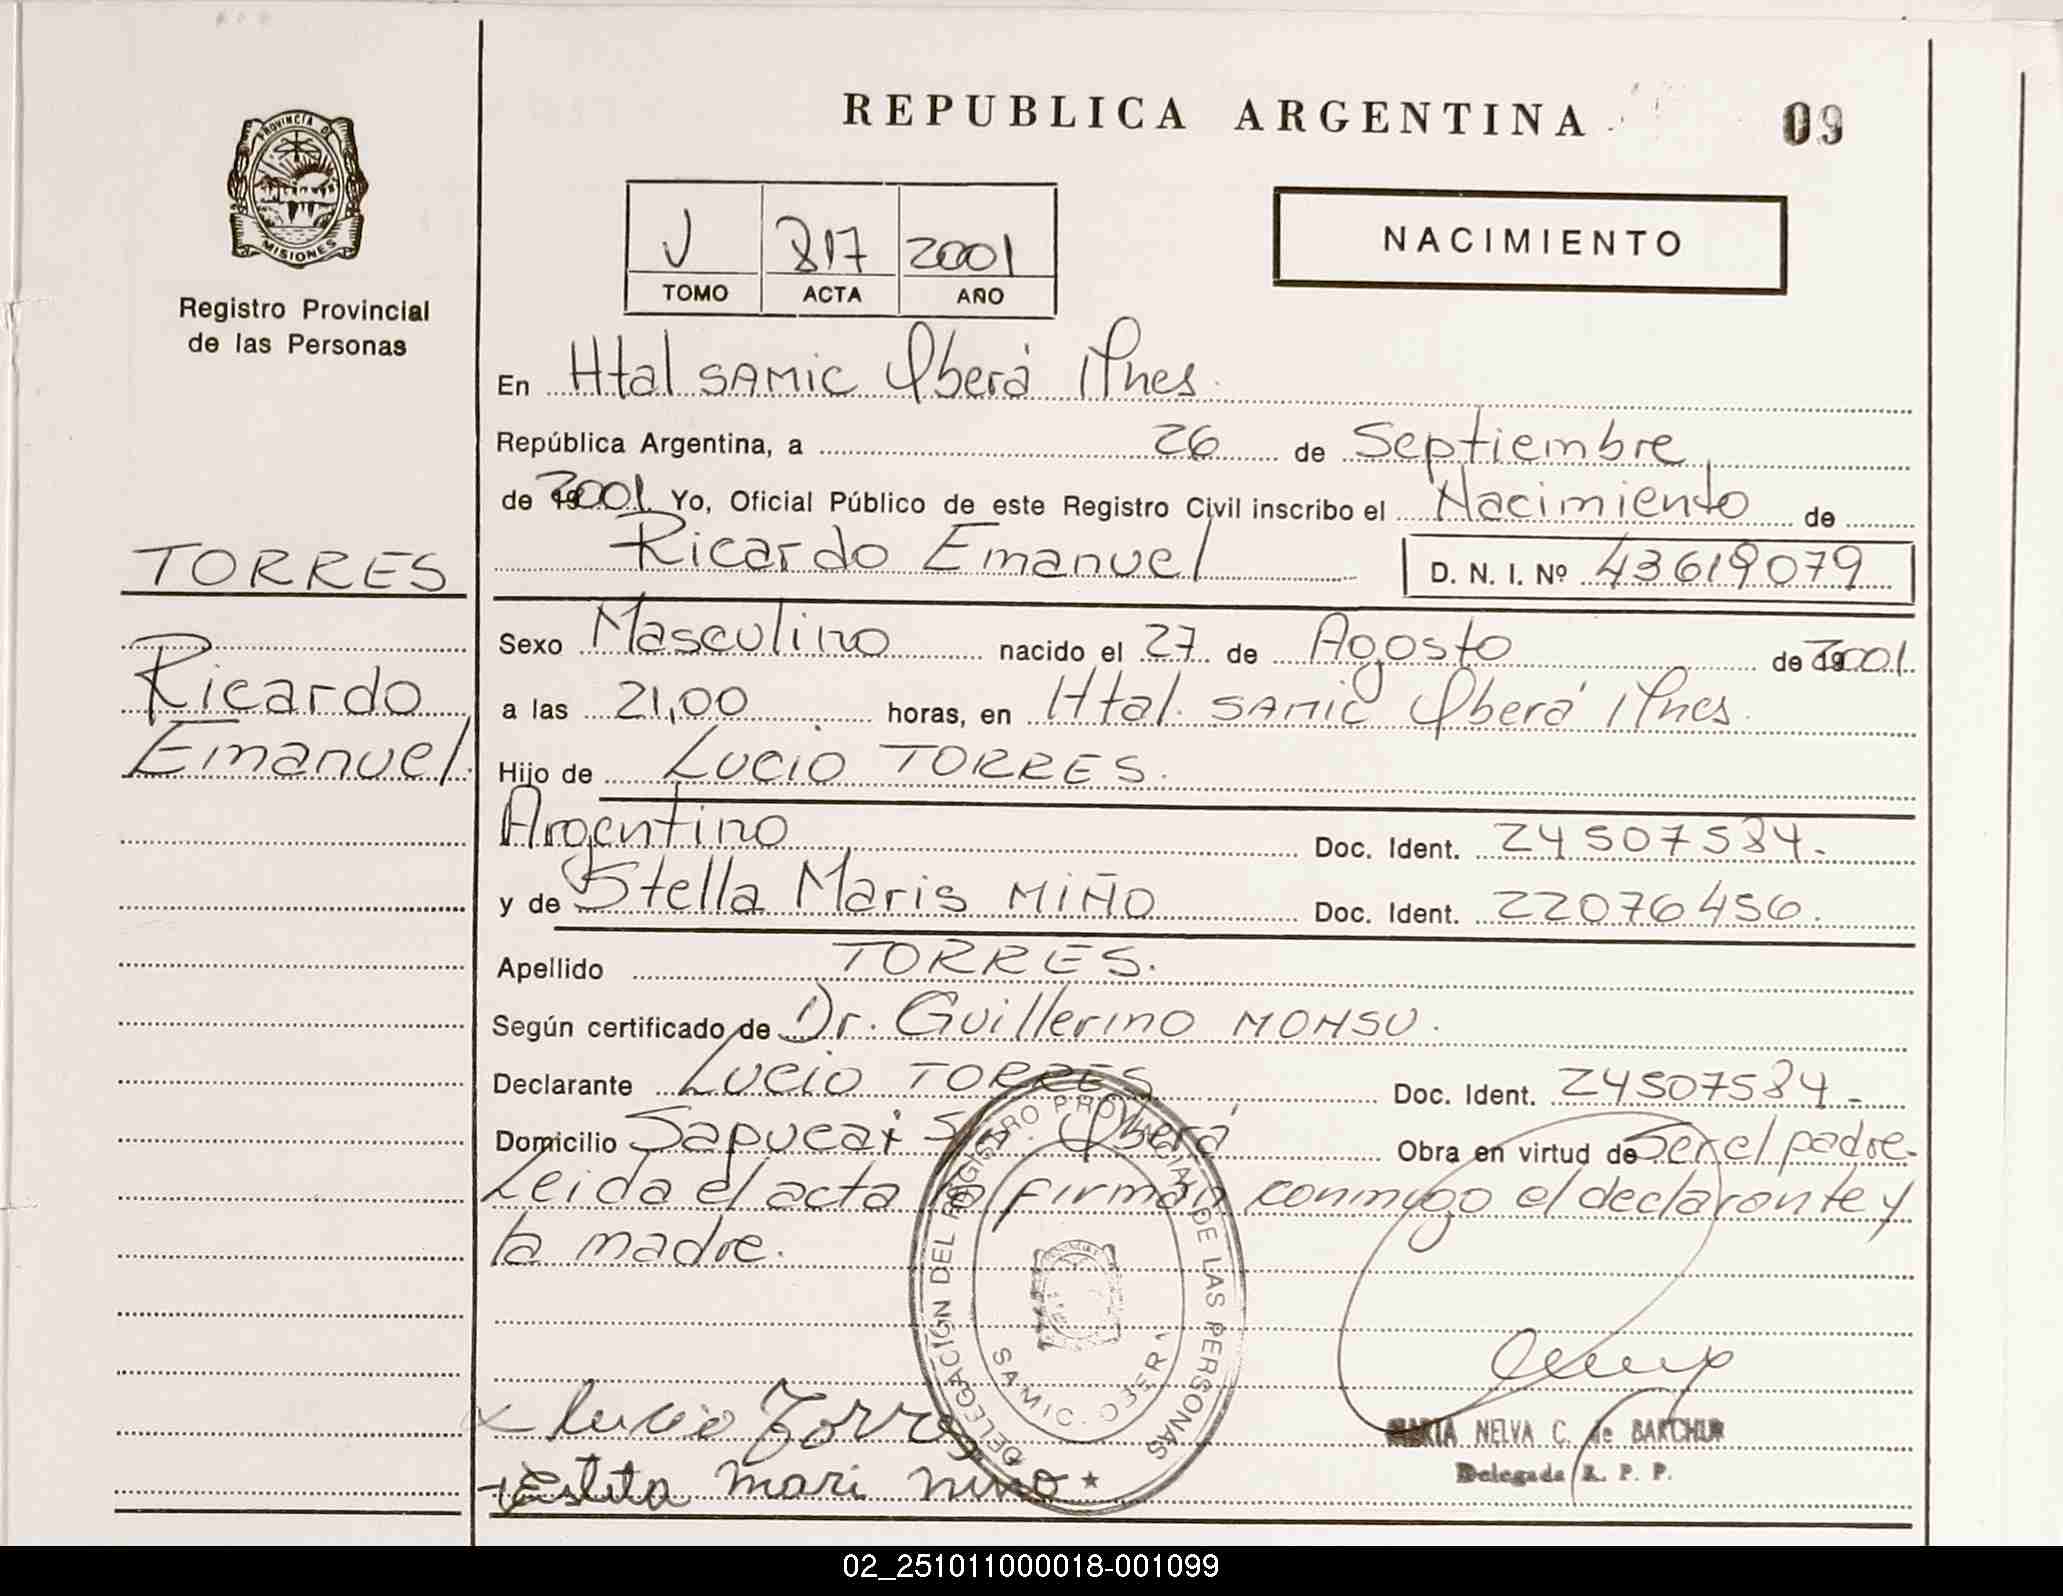 REPUBLICA ARGENTINA
09
PROVINCIA DE
MISIONES
Registro Provincial
de las Personas
J 817 2001
TOMO ACTA AÑO
NACIMIENTO
En Htal SAMIC Oberá Mnes.
República Argentina, a 26 de Septiembre
de 2001 Yo, Oficial Público de este Registro Civil inscribo el Nacimiento de
Ricardo Emanuel D. N. I. Nº 43619079
TORRES
Ricardo
Emanuel.
Sexo Masculino nacido el 27 de Agosto de 2001.
a las 21,00 horas, en Htal. SAMIC Oberá Mnes.
Hijo de Lucio TORRES.
Argentino Doc. Ident. 24507584.
y de Stella Maris MIÑO Doc. Ident. 22076456.
Apellido TORRES.
Según certificado de Dr. Guillermo MONSU.
Declarante Lucio TORRES Doc. Ident. 24507584-
Domicilio Sapucai S/n. Oberá Obra en virtud de Ser el padre-
Leida el acta la firman conmigo el declarante y
la madre.
DELEGACIÓN DEL REGISTRO PROVINCIAL DE LAS PERSONAS
SAMIC. OBERA
x lucio Torres
mari
NELVA C. de BARCHUK
Delegada R. P. P.
02_251011000018-001099